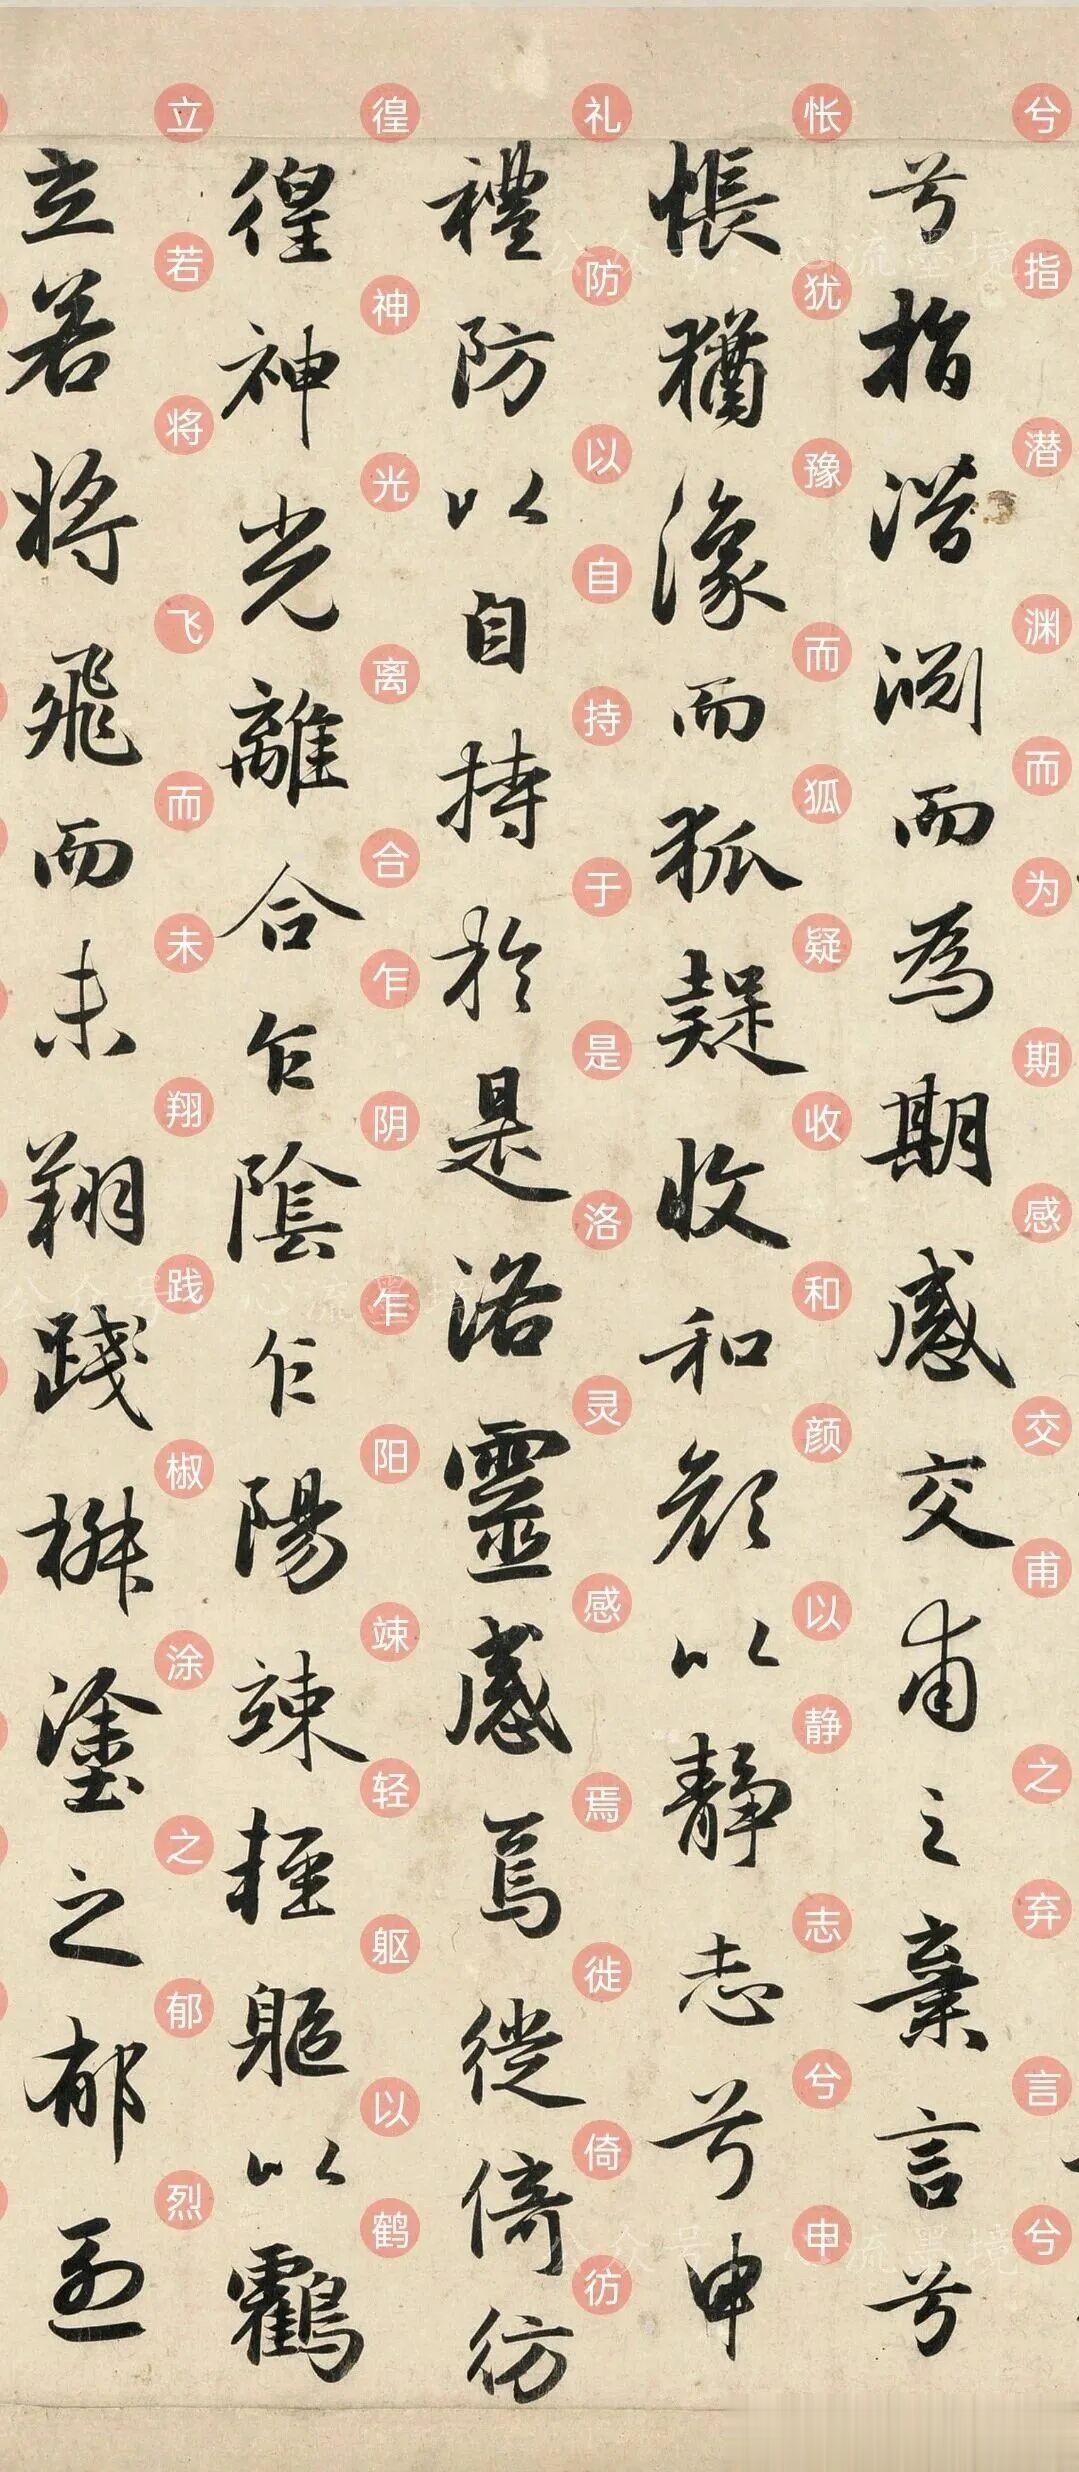 兮指潜渊而为期感交甫之弃言兮
兮指潛淵而為期感交甫之棄言兮
怅犹豫而狐疑收和颜以静志兮申
悵猶豫而狐疑收和顏以静志兮申
礼防以自持于是洛灵感焉徙倚彷
禮防以自持於是洛靈感焉徙倚彷
徨神光离合乍阴乍阳竦轻躯以鹤
徨神光離合乍陰乍陽竦輕軀以鶴
立若将飞而未翔践椒涂之郁烈
立若將飛而未翔踐椒塗之郁烈